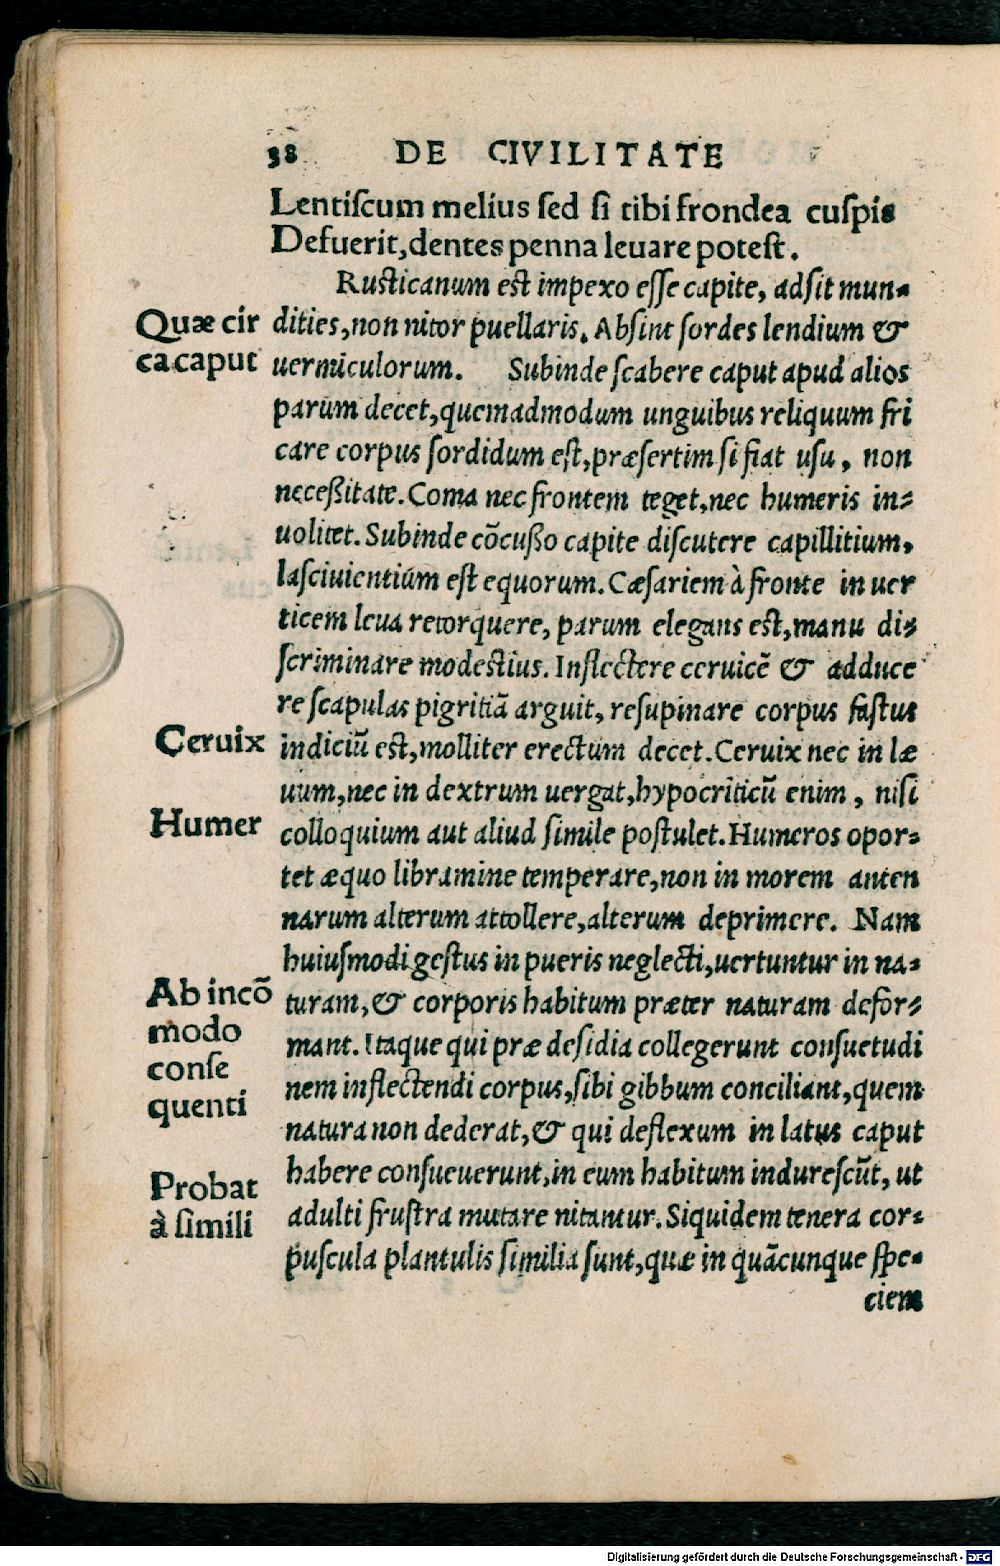 38 DE CIVILITATE
Lentiſcum melius ſed ſi tibi frondea cuſpis
Defuerit, dentes penna leuare poteſt.
Ruſticanum eſt impexo eſſe capite, adſit mun-
Quæ cir
ca caput
dities, non nitor puellaris. Abſint ſordes lendium &
uermiculorum. Subinde ſcabere caput apud alios
parum decet, quemadmodum unguibus reliquum fri
care corpus ſordidum eſt, præſertim ſi fiat uſu, non
neceßitate. Coma nec frontem teget, nec humeris in-
uolitet. Subinde cõcußo capite diſcutere capillitium,
laſciuientium eſt equorum. Cæſariem à fronte in uer
ticem leua retorquere, parum elegans eſt, manu di-
ſcriminare modeſtius. Inflectere ceruicẽ & adduce
re ſcapulas pigritiã arguit, reſupinare corpus faſtus
Ceruix
indiciũ eſt, molliter erectum decet. Ceruix nec in læ
uum, nec in dextrum uergat, hypocriticũ enim, niſi
Humer
colloquium aut aliud ſimile poſtulet. Humeros opor-
tet æquo libramine temperare, non in morem anten
narum alterum attollere, alterum deprimere. Nam
huiuſmodi geſtus in pueris neglecti, uertuntur in na-
Ab incõ
modo
conſe
quenti
turam, & corporis habitum præter naturam defor-
mant. Itaque qui præ deſidia collegerunt conſuetudi
nem inflectendi corpus, ſibi gibbum conciliant, quem
natura non dederat, & qui deflexum in latus caput
Probat
à ſimili
habere conſueuerunt, in eum habitum indureſcũt, ut
adulti fruſtra mutare nitantur. Siquidem tenera cor-
puſcula plantulis ſimilia ſunt, quæ in quãcunque ſpe-
ciem
Digitalisierung gefördert durch die Deutsche Forschungsgemeinschaft - DFG